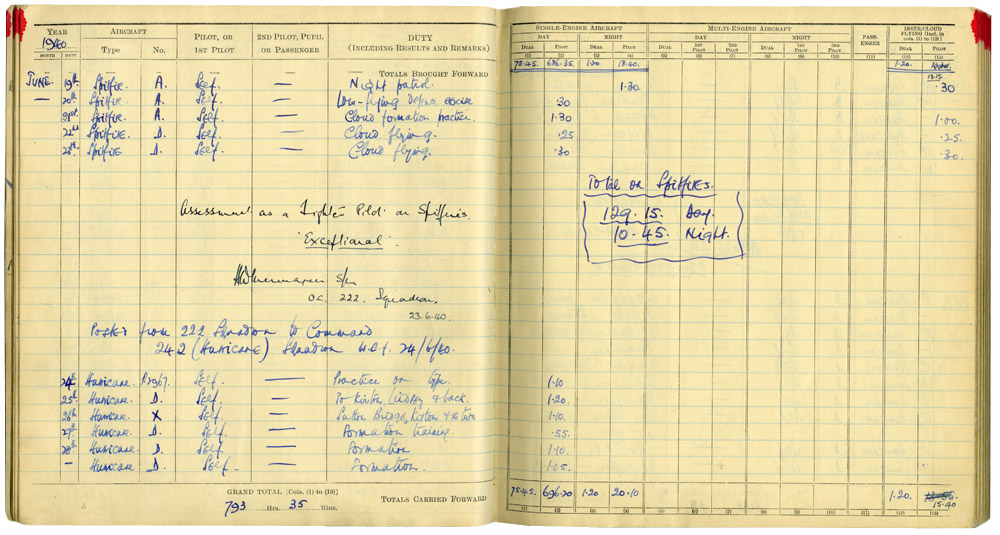 YEAR AIRCRAFT PILOT, OR 2ND PILOT, PUPIL DUTY
1940. Type No. 1ST PILOT OR PASSENGER (INCLUDING RESULTS AND REMARKS)
MONTH DATE
SINGLE-ENGINE AIRCRAFT MULTI-ENGINE AIRCRAFT PASS-ENGER INSTR/CLOUD FLYING [Incl. in cols. (1) to (10)]
DAY NIGHT DAY NIGHT
DUAL PILOT DUAL PILOT DUAL 1ST PILOT 2ND PILOT DUAL 1ST PILOT 2ND PILOT DUAL PILOT
(1) (2) (3) (4) (5) (6) (7) (8) (9) (10) (11) (12) (13)
— — — — — TOTALS BROUGHT FORWARD 75.45. 686.35. 1.20 18.40. 1.20.
13.15
JUNE 19th Spitfire. A. Self. — Night patrol. 1.30 .30
— 20th Spitfire. A. Self. — Low-flying Defence .30
21st Spitfire. A. Self. — Cloud formation practice. 1.30 1.00.
22nd Spitfire. D. Self. — Cloud flying. .25 .25
23rd Spitfire. D. Self. — Cloud flying. .30 .30.
Total on Spitfires.
129.15. Day.
10.45. Night.
Assessment as a Fighter Pilot on Spitfires.
'Exceptional'.
S/Ldr
O.C. 222. Squadron.
23.6.40.
Posted from 222 Squadron to Command
242 (Hurricane) Squadron W.E.F. 24/6/40.
24th Hurricane. P2967. Self. — Practice on type. 1.10
25th Hurricane. D. Self. — To Kirton Lindsey & back. 1.20.
26th Hurricane. X Self. — Sutton Bridge, Kirton & return 1.10.
27th Hurricane. D. Self. — Formation training. .55.
28th Hurricane. D. Self. — Formation 1.10.
— Hurricane. D. Self. — Formation. 1.05.
GRAND TOTAL [Cols. (1) to (10)] TOTALS CARRIED FORWARD 75.45. 696.20 1.20 20.10 1.20. 15.40
793 Hrs. 35 Mins.
(1) (2) (3) (4) (5) (6) (7) (8) (9) (10) (11) (12) (13)